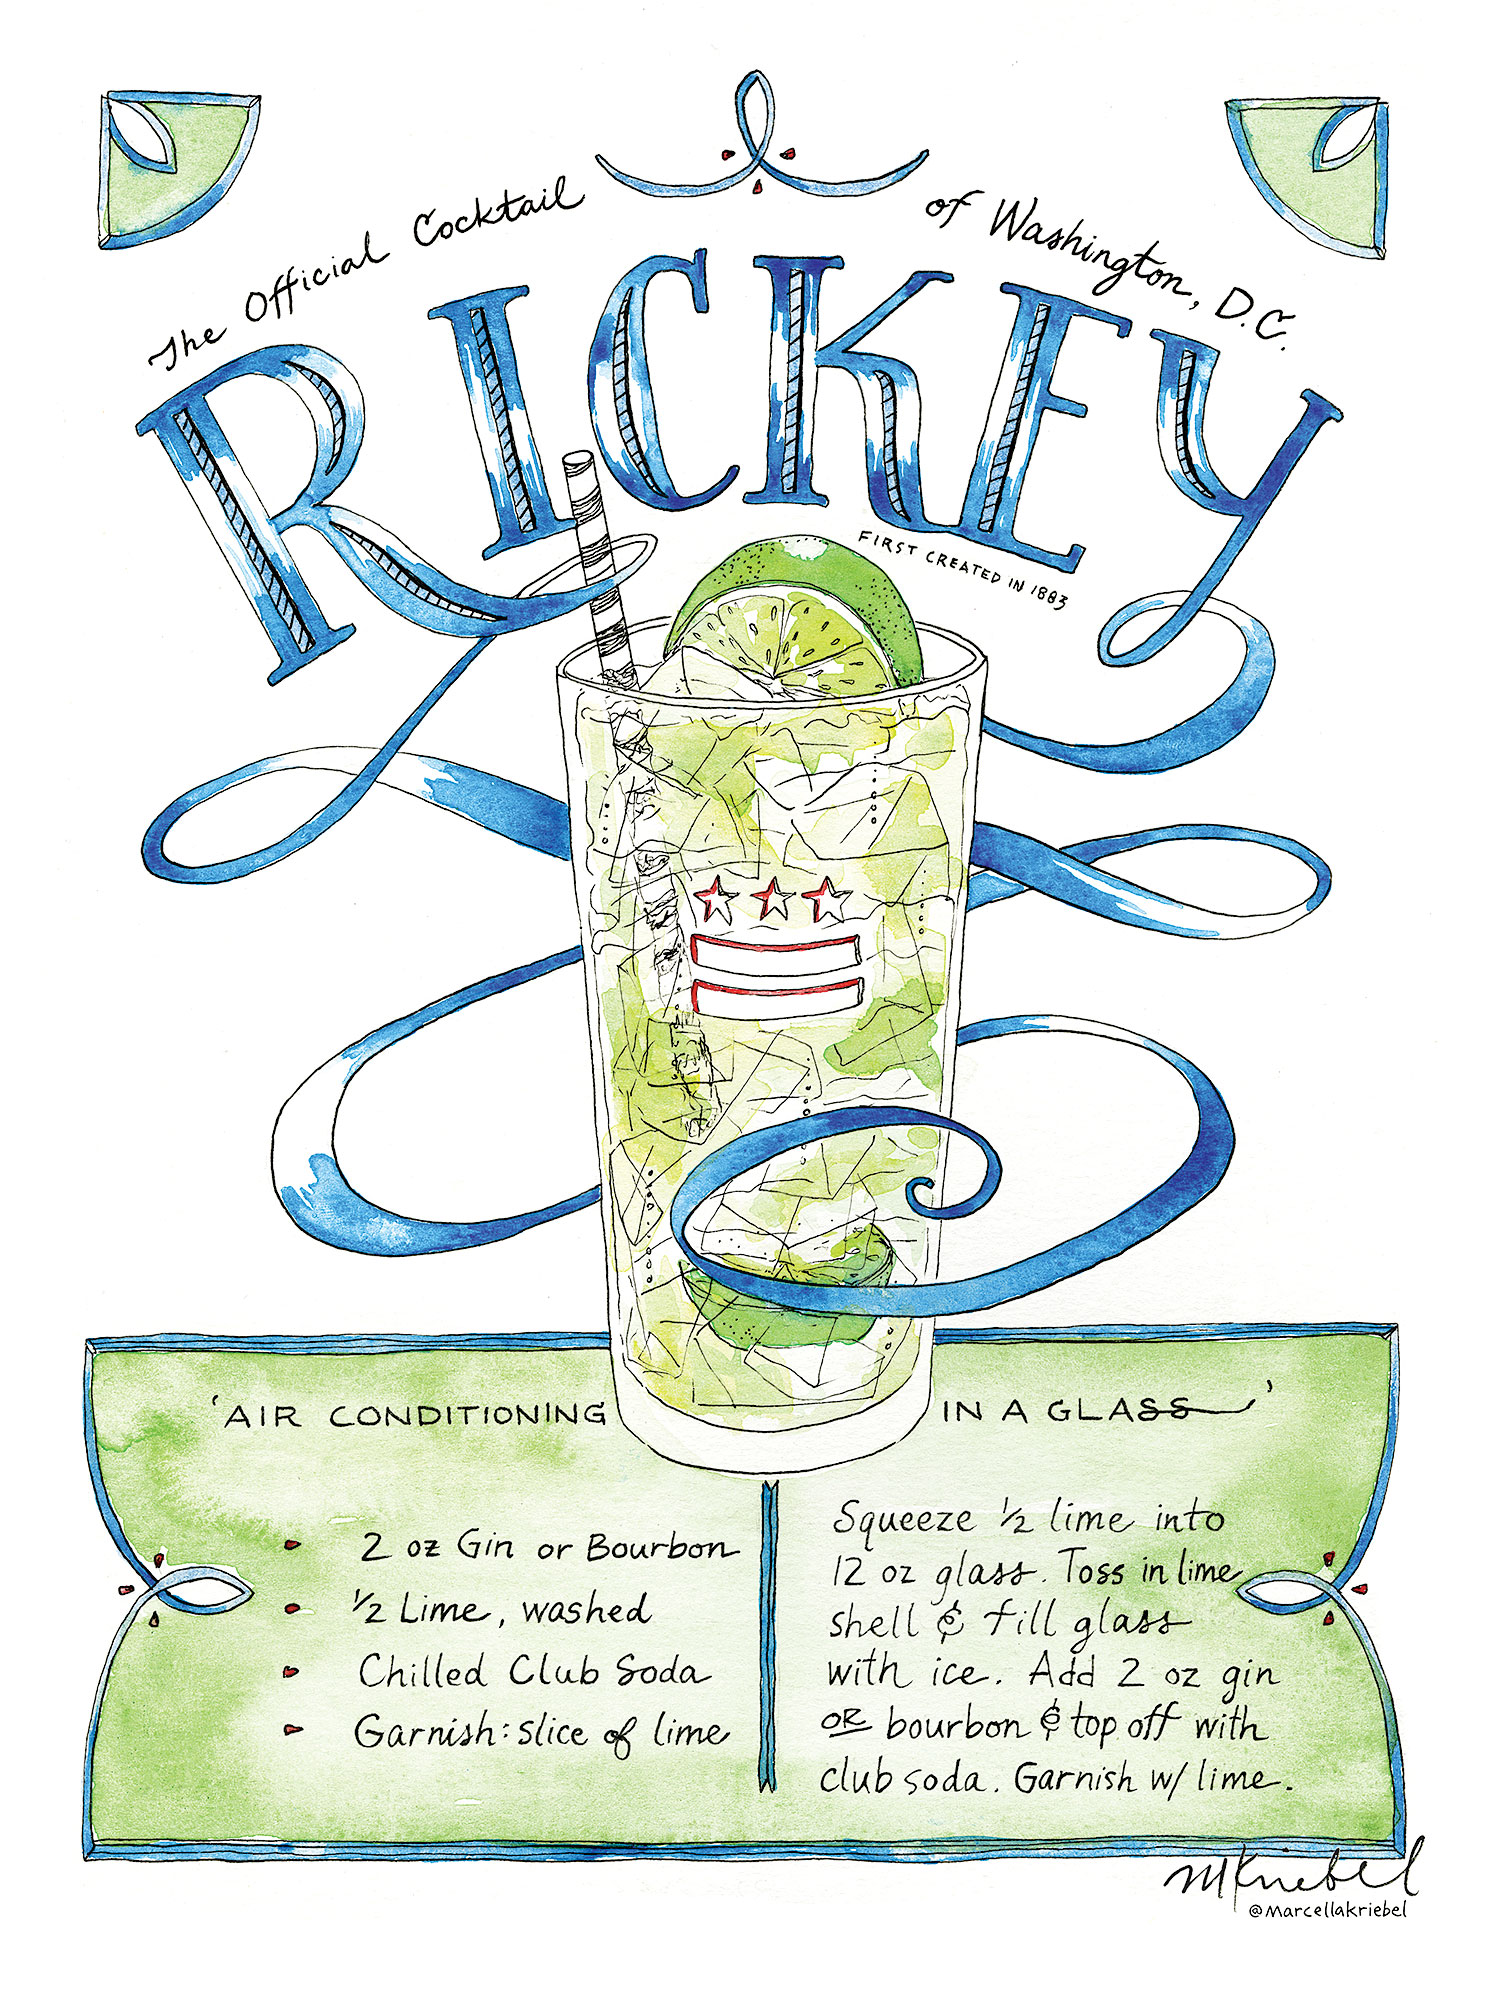 The Official Cocktail of Washington, D.C.
RICKEY
FIRST CREATED IN 1883
'AIR CONDITIONING IN A GLASS'
2 oz Gin or Bourbon
½ Lime, washed
Chilled Club Soda
Garnish: slice of lime
Squeeze ½ lime into
12 oz glass. Toss in lime
shell & fill glass
with ice. Add 2 oz gin
OR bourbon & top off with
club soda. Garnish w/ lime.
MKriebel
@marcellakriebel